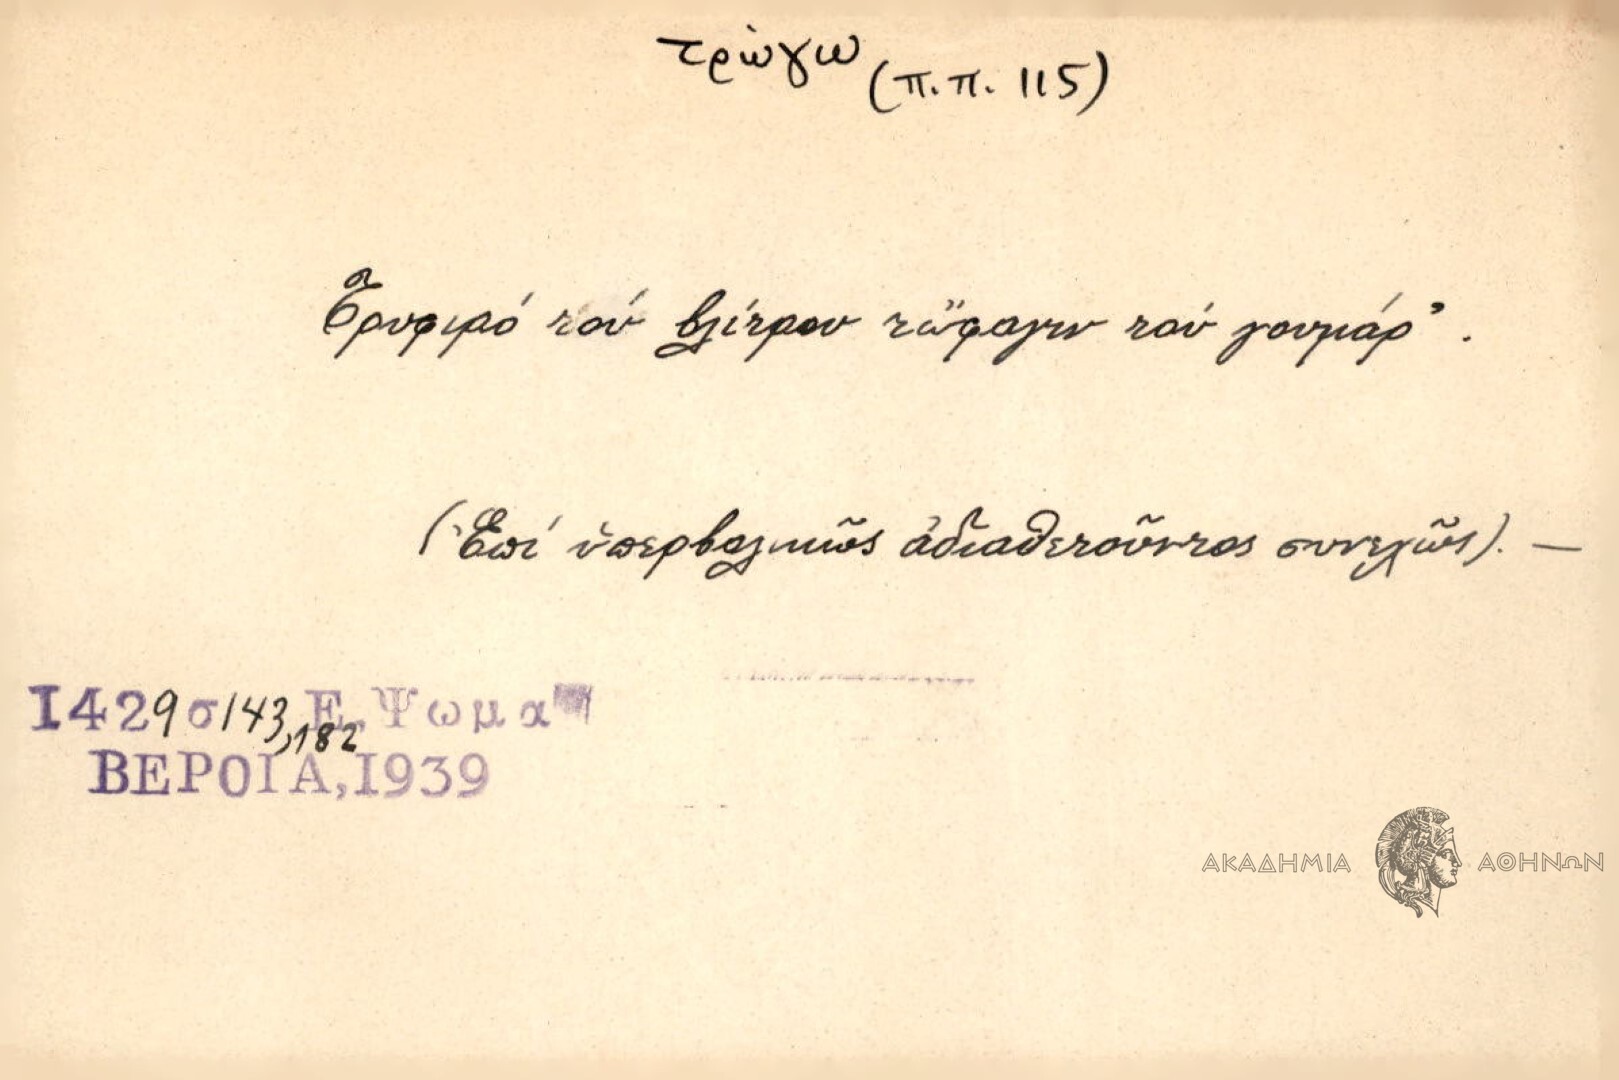 τρώγω (π.π. 115)
Τρυφιρό τού βλίτρου τὤφαγιν τού γουμάρ'.
(Ἐπί ὑπερβολικῶς ἀδιαθετοῦντος συνεχῶς). —
1429 σ 143, 182 Ε. Ψωμα
ΒΕΡΟΙΑ, 1939
ΑΚΑΔΗΜΙΑ ΑΘΗΝΩΝ